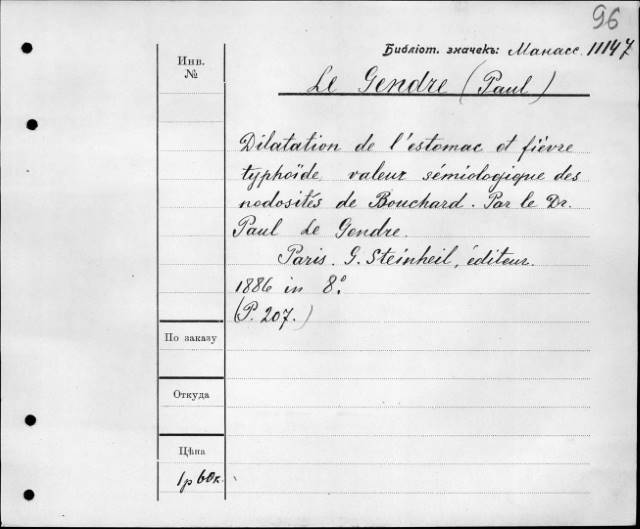 96
Библіот. значекъ: Манасс. 11147
Инв.
№
Le Gendre (Paul)
Dilatation de l'estomac et fièvre
typhoïde, valeur sémiologique des
nodosités de Bouchard. Par le Dr.
Paul Le Gendre.
Paris. G. Steinheil, éditeur.
1886 in 8º.
(P. 207.)
По заказу
Откуда
Цѣна
1р 60к.